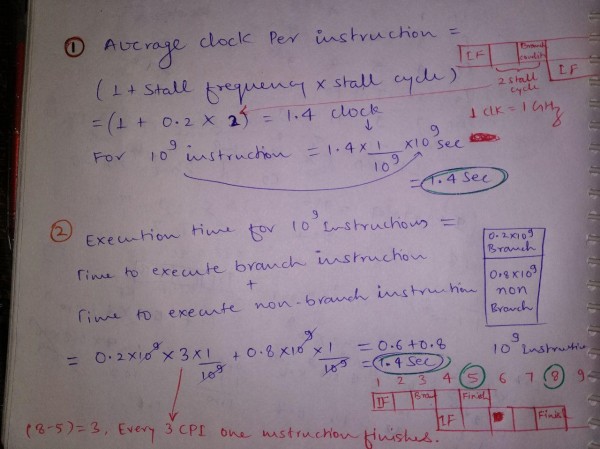 ① Average clock Per instruction =
IF Branch condition
IF
(1 + Stall frequency x stall cycle)
2 stall cycle
= (1 + 0.2 x 2) = 1.4 clock
1 clk = 1 GHz
For 10^9 instruction = 1.4 x 1/10^9 x 10^9 sec
= 1.4 sec
② Execution time for 10^9 Instructions =
Time to execute branch instruction
+
Time to execute non-branch instruction
0.2x10^9 Branch
0.8x10^9 non Branch
10^9 Instructio
= 0.2x10^9 x 3 x 1/10^9 + 0.8x10^9 x 1/10^9 = 0.6+0.8
= 1.4 sec
1 2 3 4 5 6 7 8 9
IF Bra Finish
IF Finish
(8-5)=3. Every 3 CPI one instruction finishes.